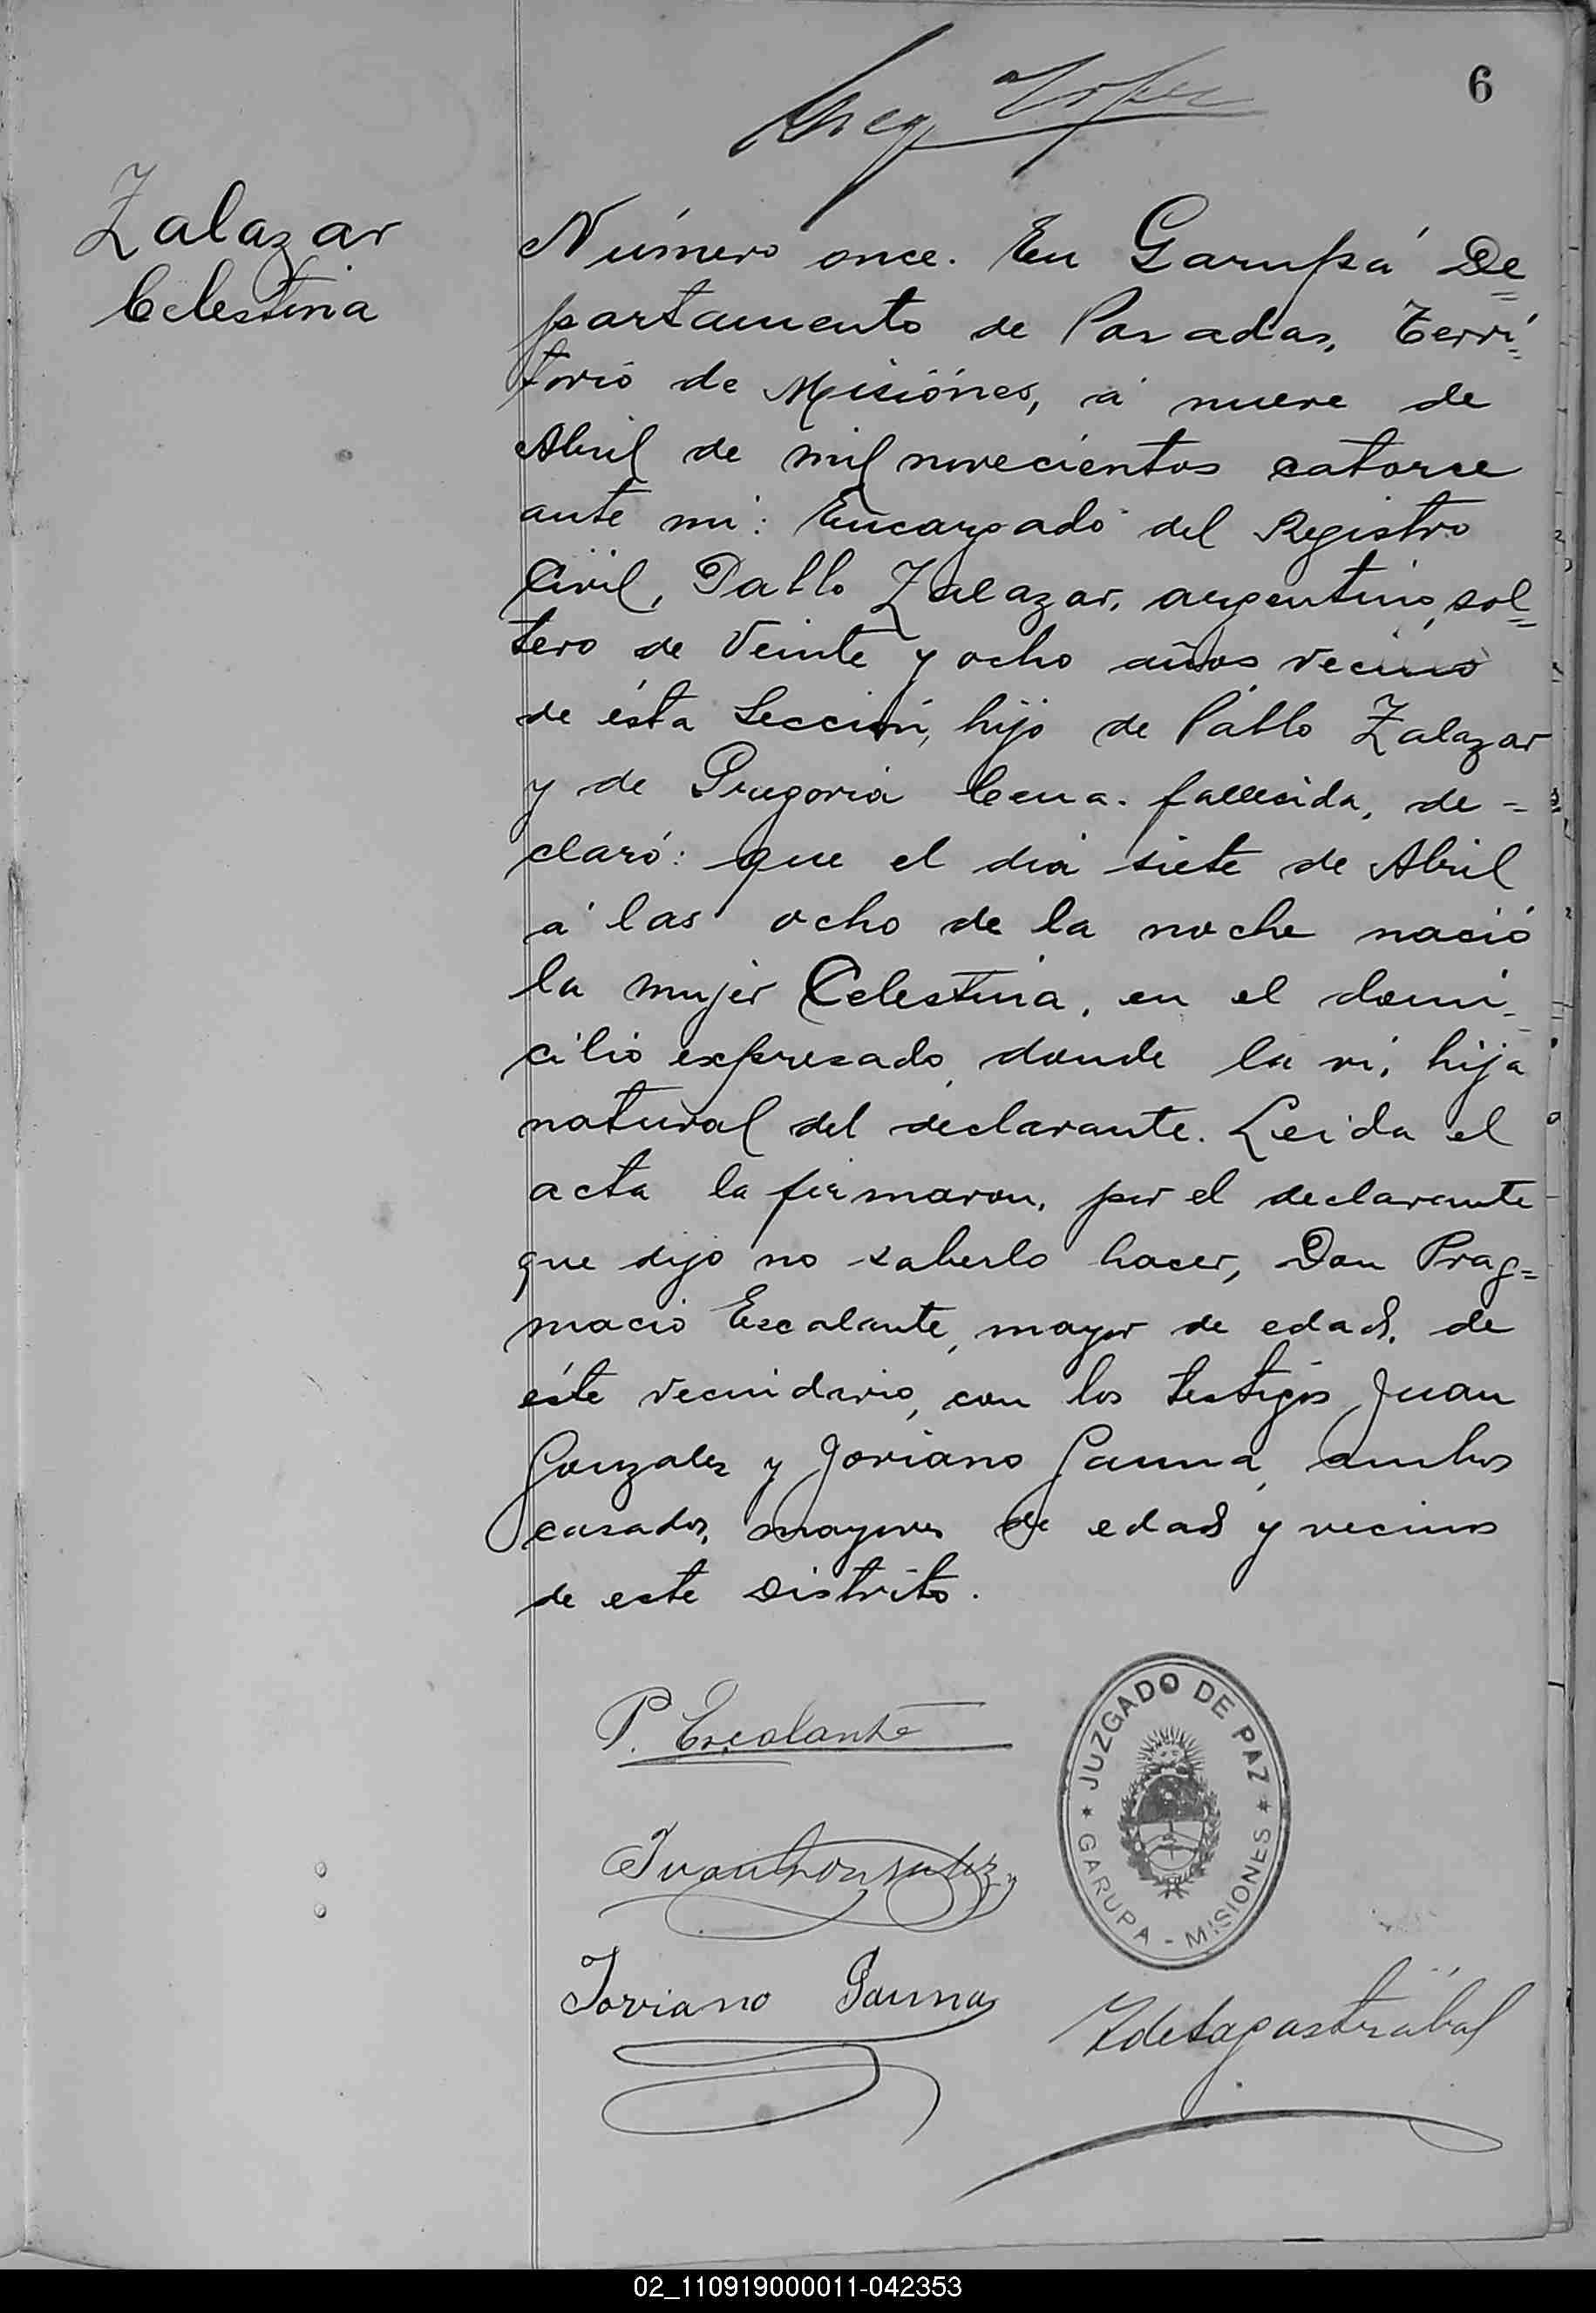 6
Zalazar
Celestina
Número once. En Garupá De=
partamento de Posadas, Terri=
torio de Misiónes, á nueve de
Abril de mil novecientos catorce
ante mi: Encargado del Registro
Civil, Pablo Zalazar, argentino, sol=
tero de Veinte y ocho años vecino
de ésta Sección, hijo de Pablo Zalazar
y de Gregoria Cena. fallecida, de=
claró: que el dia siete de Abril
á las ocho de la noche nació
la mujer Celestina, en el domi-
cilio expresado, donde la vi, hija
natural del declarante. Leida el
acta la firmaron, por el declarante
que dijo no saberlo hacer, Don Prag=
macio Escalante, mayor de edad, de
éste vecindario, con los testigos Juan
Gonzalez y Joviano Gauna, ambos
casados, mayores de edad y vecinos
de este Distrito.
P. Escalante
JUZGADO DE PAZ
GARUPA - MISIONES
Juan Gonzalez
Joviano Gauna
02_110919000011-042353